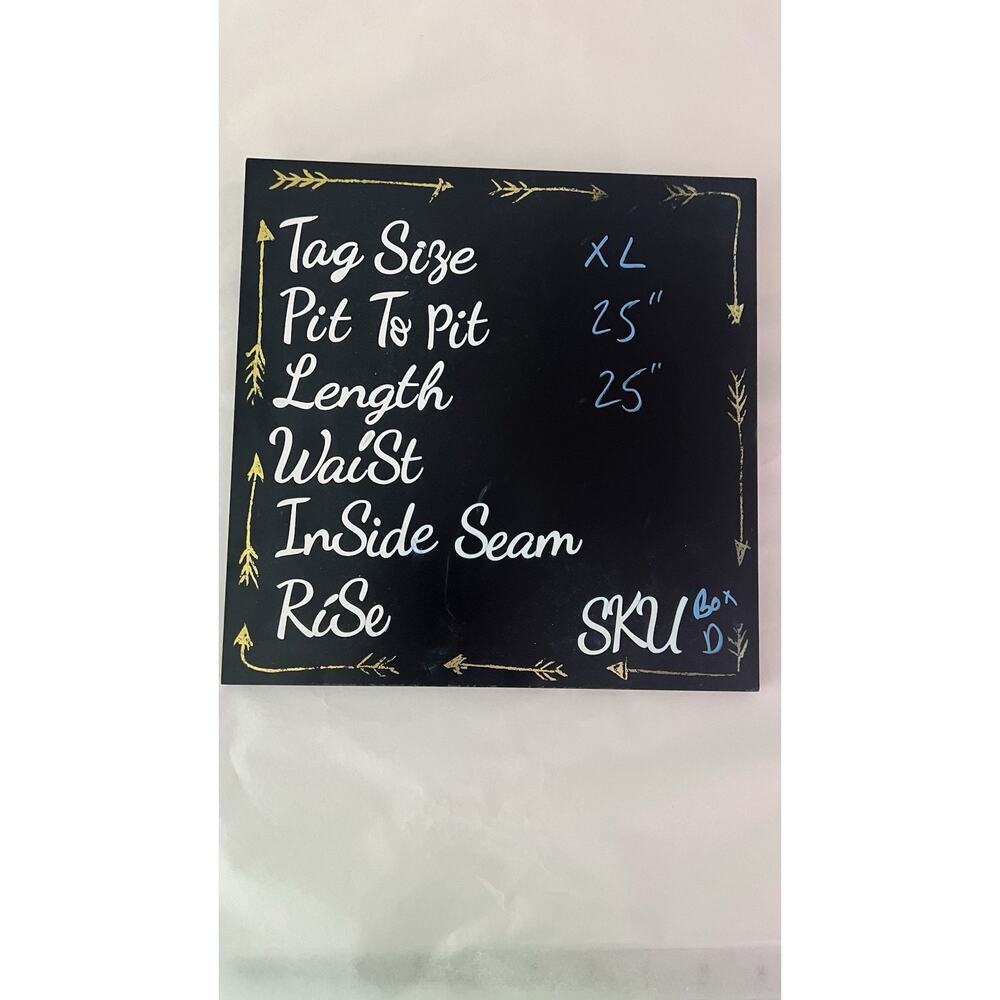 Tag Size XL
Pit To Pit 25"
Length 25"
Waist
InSide Seam
RiSe
SKU Box D